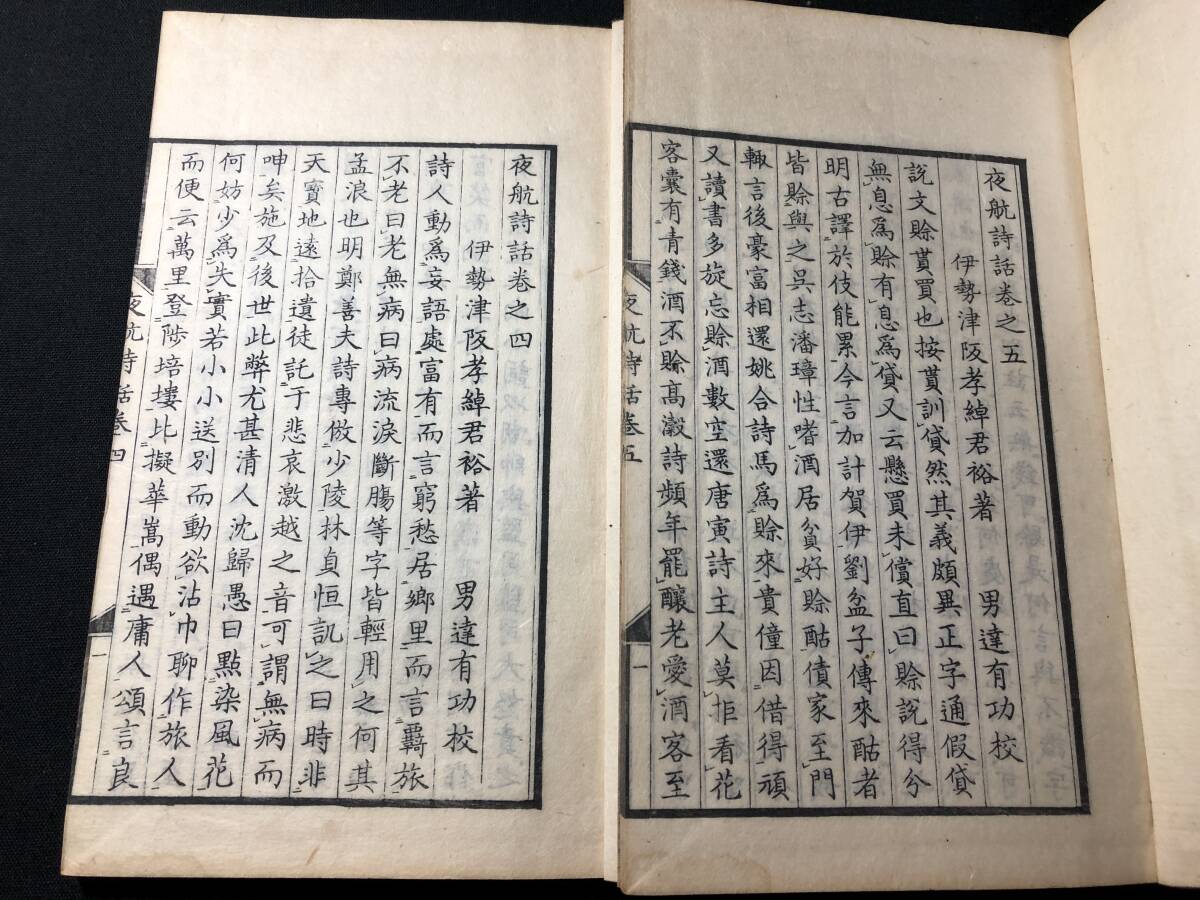 夜航詩話卷之五
伊勢津阪孝綽君裕著 男達有功校
說文賒貰買也按貰訓貸然其義頗異正字通假貸
無息爲賒有息爲貸又云懸買未償直曰賒說得分
明古譯於伎能累今言加計賀伊劉盆子傳來酤者
皆賒與之吳志潘璋性嗜酒居貧好賒酤債家至門
輙言後豪富相還姚合詩馬爲賒來貴僮因借得頑
又讀書多旋忘賒酒數空還唐寅詩主人莫拒看花
客囊有青錢酒不賒高瀫詩頻年罷釀老愛酒客至
夜航詩話卷五
一
夜航詩話卷之四
伊勢津阪孝綽君裕著 男達有功校
詩人動爲妄語處富有而言窮愁居鄉里而言羇旅
不老曰老無病曰病流淚斷膓等字皆輕用之何其
孟浪也明鄭善夫詩專倣少陵林貞恒訊之曰時非
天寶地遠拾遺徒託于悲哀激越之音可謂無病而
呻矣施及後世此弊尤甚清人沈歸愚曰點染風花
何妨少爲失實若小小送別而動欲沾巾聊作旅人
而便云萬里登陟培塿比擬華嵩偶遇庸人頌言良
夜航詩話卷四
一